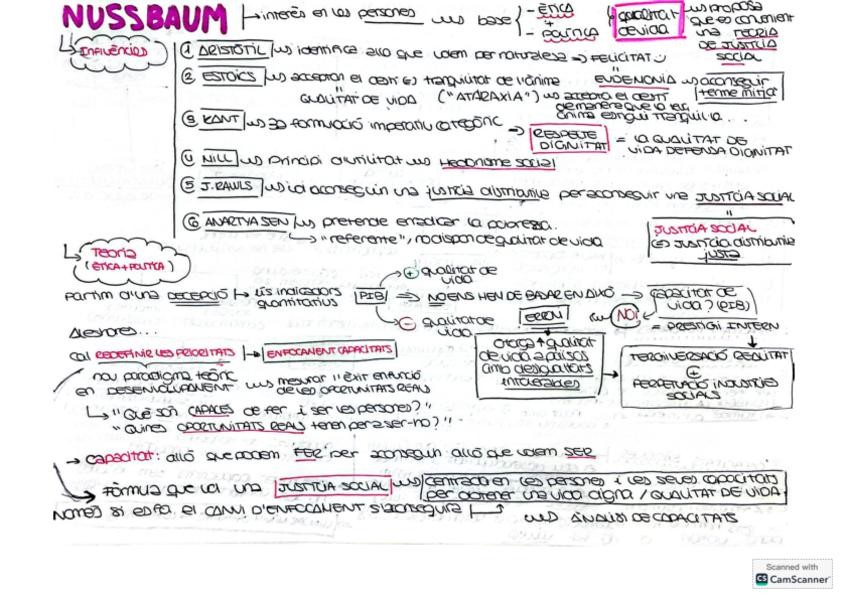 NUSSBAUM
interès en les persones
base
- ÈTICA
+
- POLÍTICA
QUALITAT
de vida
proposa
que és convenient
una TEORIA
DE JUSTÍCIA
SOCIAL
INFLUÈNCIES
① ARISTÒTIL identifica allò que volem per naturalesa → FELICITAT
② ESTOICS acceptar el destí tranquil·litat de l'ànima
EUDEMONIA
aconseguir
terme mitjà
QUALITAT DE VIDA ("ATARAXIA") accepta el destí
de manera que la
ànima estigui tranquil·la...
③ KANT 3a formulació imperatiu categòric → RESPECTE
DIGNITAT = LA QUALITAT DE
VIDA DEFENSA DIGNITAT
④ MILL principi d'utilitat HEDONISME SOCIAL
⑤ J.RAWLS vol aconseguir una justícia distributiva per aconseguir una JUSTÍCIA SOCIAL
JUSTÍCIA SOCIAL
JUSTÍCIA distributiva
justa
⑥ AMARTYA SEN pretende erradicar la pobresa..
"referente", no disposen de qualitat de vida
Teoria
(ÈTICA + POLÍTICA)
+ qualitat de
vida
partim d'una DECEPCIÓ els indicadors
quantitatius PIB ⇒ NO ENS HEM DE BASAR EN AIXÒ → capacitat de
vida? (PIB)
- qualitat de
vida
ERROR
NO!
= PRESTIGI INTERN
Aleshores...
cal REDEFINIR LES PRIORITATS → ENFOCAMENT CAPACITATS
otorga + qualitat
de vida a països
amb desigualtats
intolerables
TERGIVERSACIÓ REALITAT
+
PERPETUACIÓ INJUSTÍCIES
SOCIALS
nou paradigma teòric
en DESENVOLUPAMENT mesurar l'èxit en funció
de les OPORTUNITATS REALS
"Què són CAPACES de fer i ser les persones?"
"Quines OPORTUNITATS REALS tenen per a ser-ho?"
→ capacitat: allò que podem FER per aconseguir allò que volem SER
→ Fórmula que vol una JUSTÍCIA SOCIAL centrada en les persones i les seves capacitats
per obtenir una vida digna / QUALITAT DE VIDA
NOMÉS SI es fa el CANVI D'ENFOCAMENT s'aconseguirà
ANÀLISI DE CAPACITATS
Scanned with
CS CamScanner